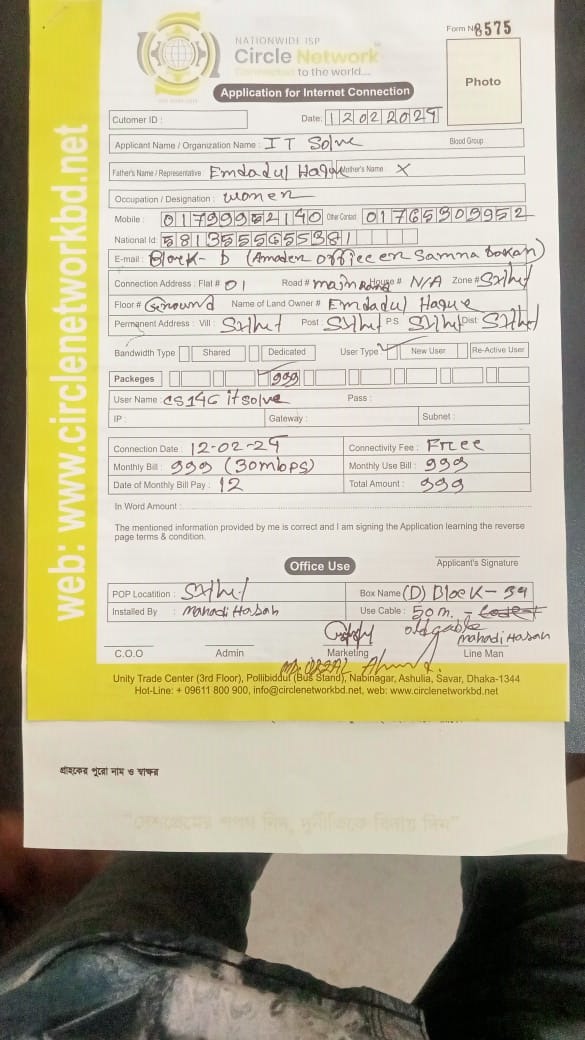 Form No 8575
NATIONWIDE ISP
Circle Network
Connected to the world....
Photo
Application for Internet Connection
Cutomer ID :
Date: 12022024
Applicant Name / Organization Name : IT Solve Blood Group
Father's Name / Representative : Emdadul Haque Mother's Name : X
Occupation / Designation : women
Mobile : 01799952140 Other Contact 01765309952
National Id:
E-mail : Block - D (Amader office er Samna Dokan)
Connection Address : Flat # 01 Road # main Road House # N/A Zone #
Floor # Ground Name of Land Owner # Emdadul Haque
Permanent Address : Vill : Post : P.S Dist
Bandwidth Type Shared Dedicated User Type New User Re-Active User
Packeges 999
User Name : itsolve Pass :
IP : Gateway : Subnet :
Connection Date : 12-02-24 Connectivity Fee : Free
Monthly Bill : 999 (30mbps) Monthly Use Bill : 999
Date of Monthly Bill Pay : 12 Total Amount : 999
In Word Amount :
The mentioned information provided by me is correct and I am signing the Application learning the reverse
page terms & condition.
Office Use
Applicant's Signature
POP Locatition : Box Name (D) Block - 39
Installed By : mahadi Hasan Use Cable : 50 m. -
old cable
mahadi Hasan
C.O.O Admin Marketing Line Man
Unity Trade Center (3rd Floor), Pollibiddut (Bus Stand), Nabinagar, Ashulia, Savar, Dhaka-1344
Hot-Line: + 09611 800 900, info@circlenetworkbd.net, web: www.circlenetworkbd.net
web: www.circlenetworkbd.net
গ্রাহকের পুরো নাম ও স্বাক্ষর
"দেশপ্রেমের শপথ নিন, দুর্নীতিকে বিদায় দিন"